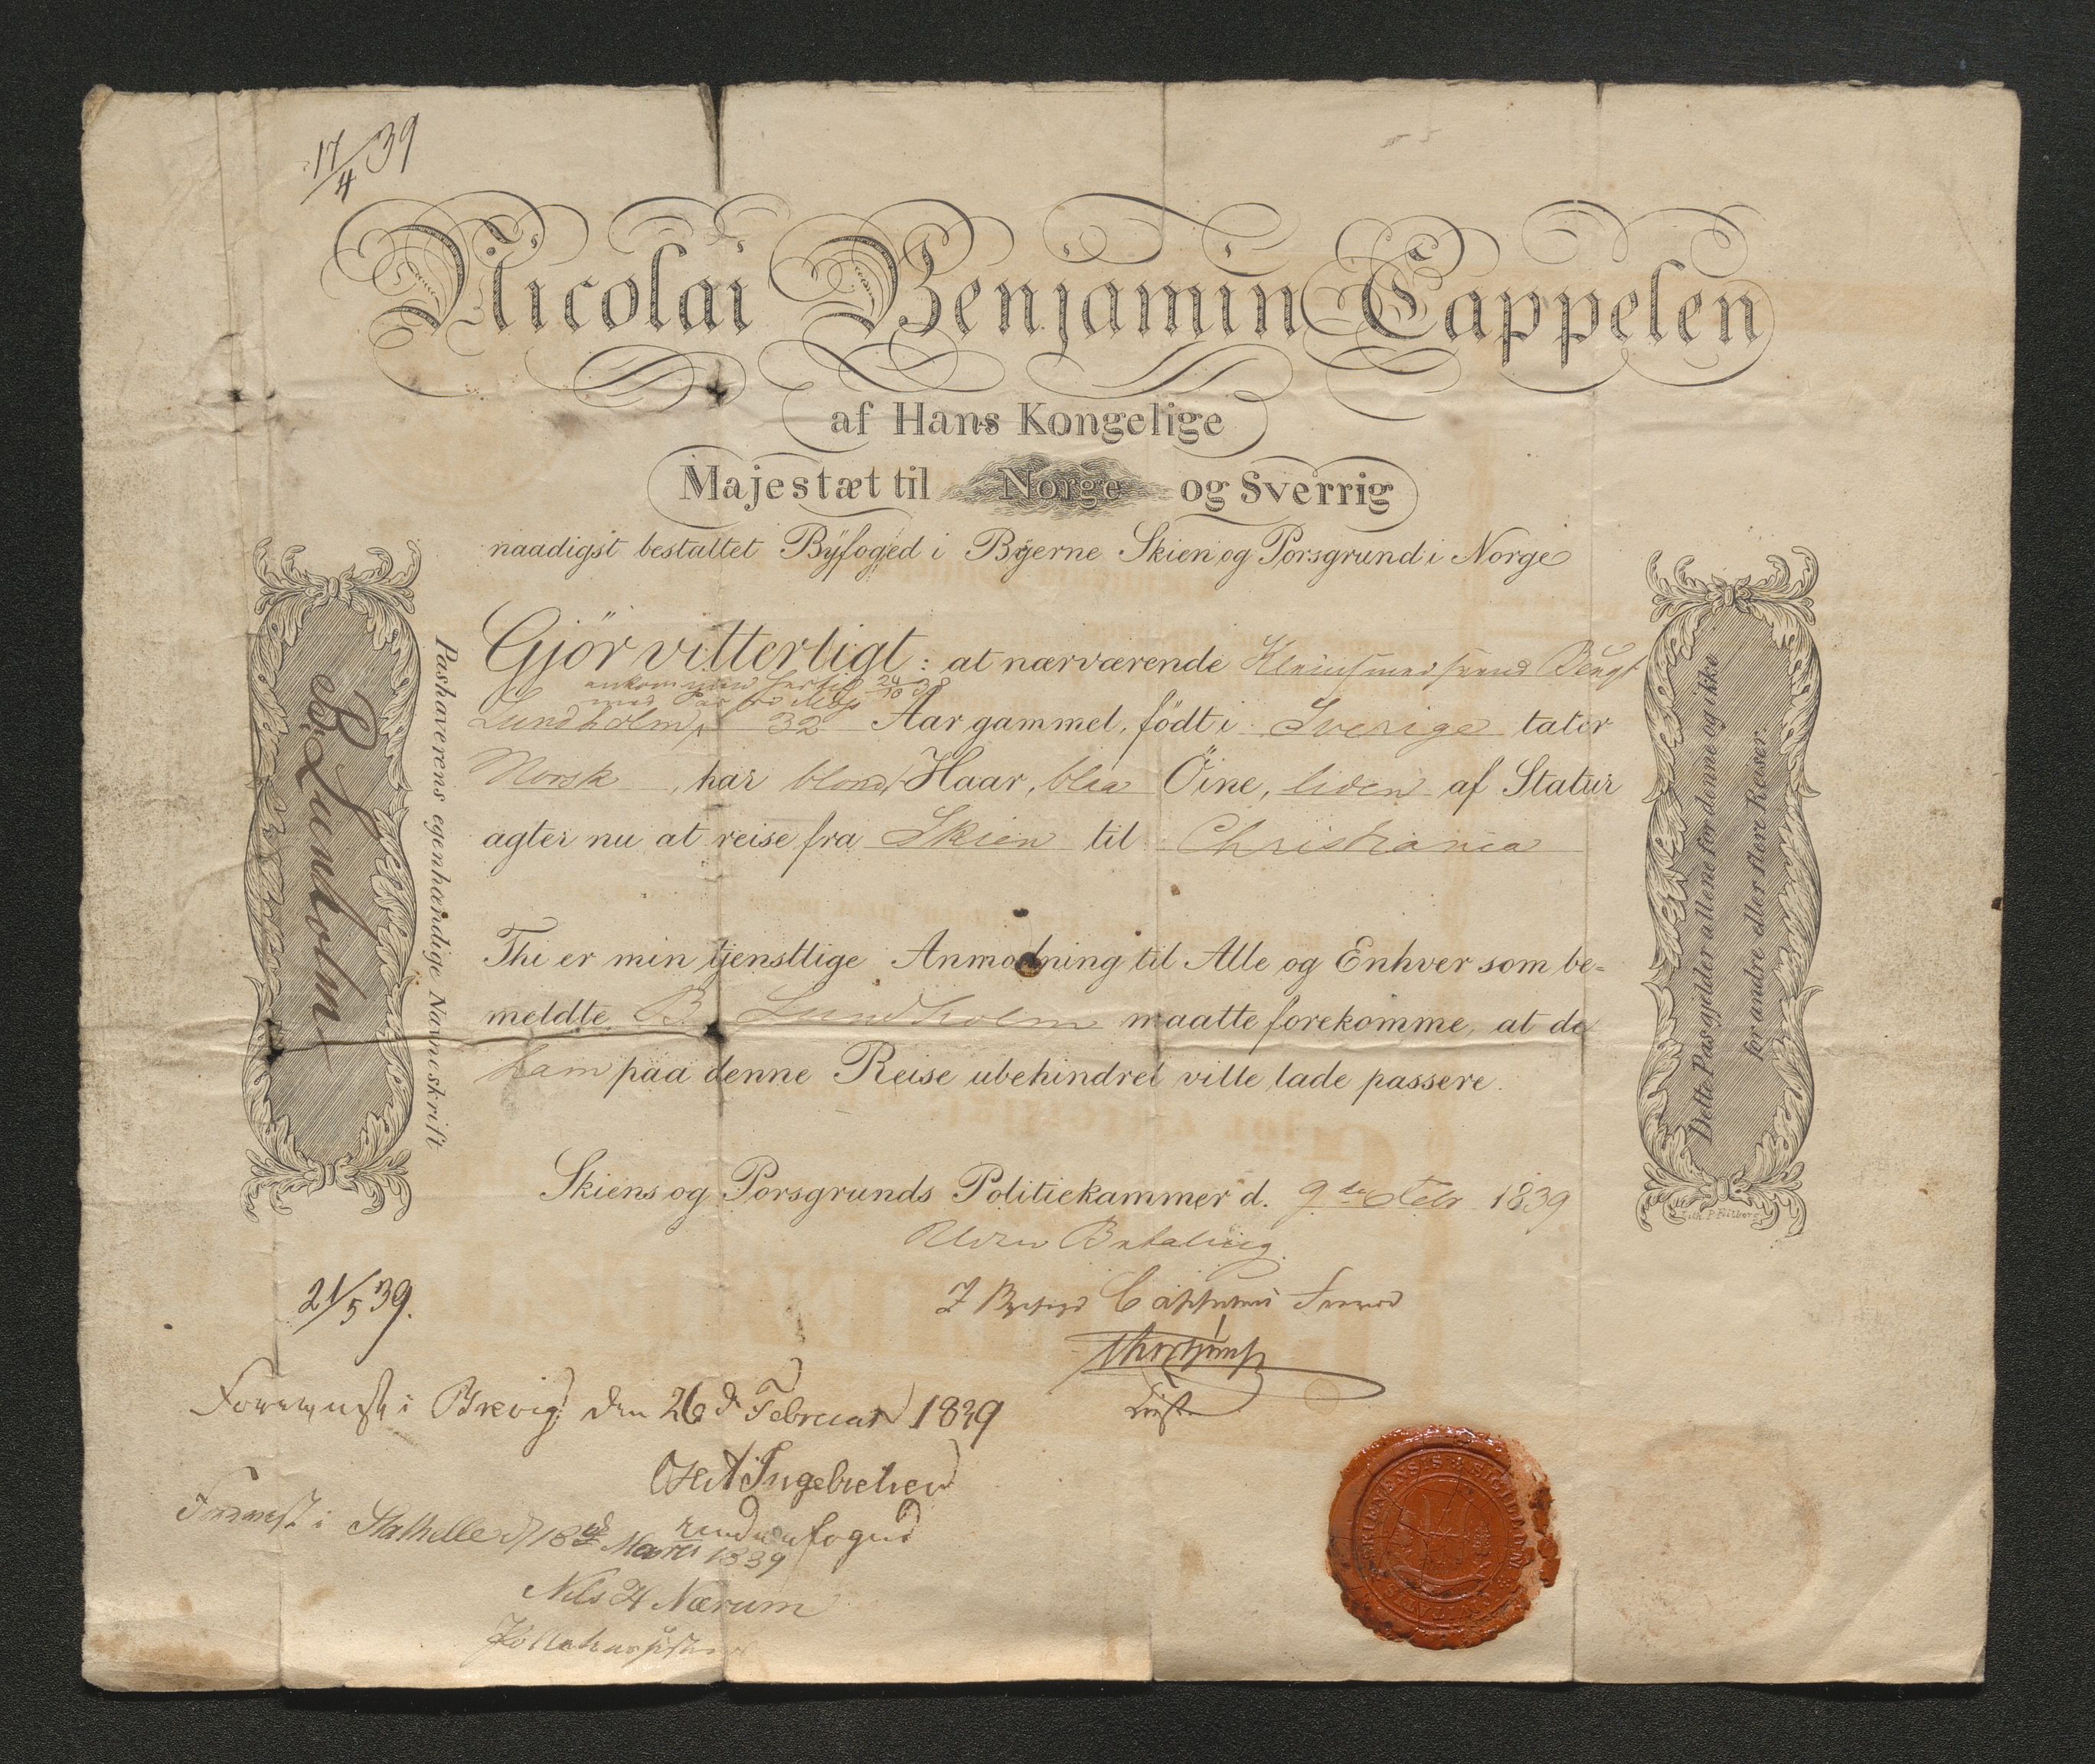 17/4 39
Nicolai Benjamin Cappelen
af Hans Kongelige
Majestæt til Norge og Sverrig
naadigst bestaltet Byfoged i Byerne Skien og Porsgrund i Norge
Gjör vitterligt: at nærværende Kleinsmedsvend Bengt
ankommen hertil 24/10 38
med Pas fra
Lundholm, 32 Aar gammel, födt i Sverige taler
Norsk, har blond Haar, blaa Öine, liden af Statur
agter nu at reise fra Skien til Christiania
Thi er min tjenstlige Anmodning til Alle og Enhver som be=
meldte B Lundholm maatte forekomme, at de
ham paa denne Reise ubehindret ville lade passere.
Skiens og Porsgrunds Politiekammer d. 9de Febr 1839
Uden Betaling.
I Byfogd Cappelens
Pashaverens egenhændige Navneskrift
B. Lunholm
Dette Pas gjelder allene for denne og ikke
for andre eller flere Reiser.
Lith. P. Petberg
21/5 39.
Foreviist i Brevig den 26de Februar 1839
Ingebretsen
Foreviist i Stathelle d 18de Marts 1839
Nils H Nærum
SKIENENSIS SIGILLUM CIVITATIS